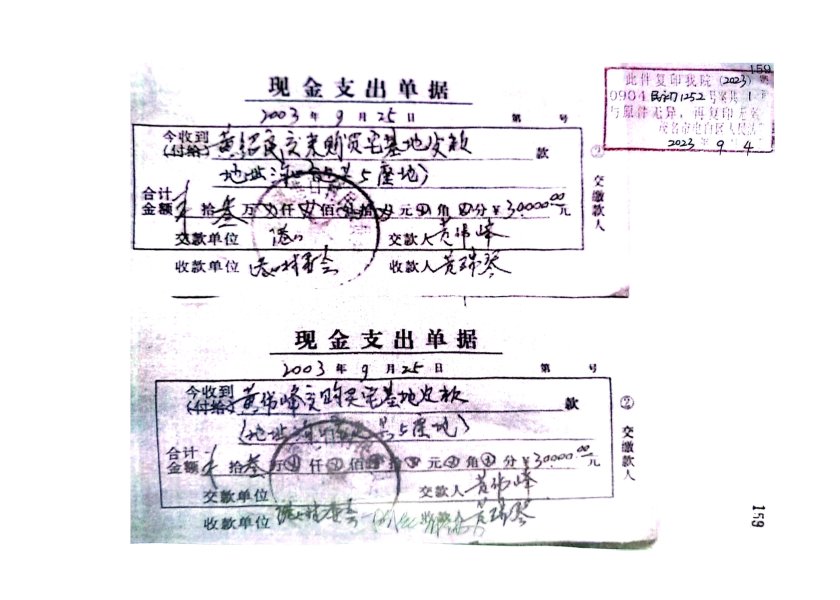 159
此件复印我院(2023)粤
0904民初1252号案共1页
与原件无异，再复印无效
茂名市电白区人民法
2023年9 4
现金支出单据
2003年9月25日 第 号
今收到
(付给) 黄绍民交来购买宅基地皮款 款
地址: 共5座地)
合计
金额 拾叁万 仟 佰 拾 元 角 分¥30000.00元
交款单位 港口 交款人黄伟峰
收款单位 港口村委会 收款人黄瑞琴
② 交缴款人
现金支出单据
2003年9月25日 第 号
今收到
(付给) 黄伟峰交购买宅基地皮款 款
(地址: 共5座地)
合计
金额 拾叁万 仟 佰 拾 元 角 分¥30000.00元
交款单位 交款人黄伟峰
收款单位 港口村委会 黄瑞琴
② 交缴款人
159